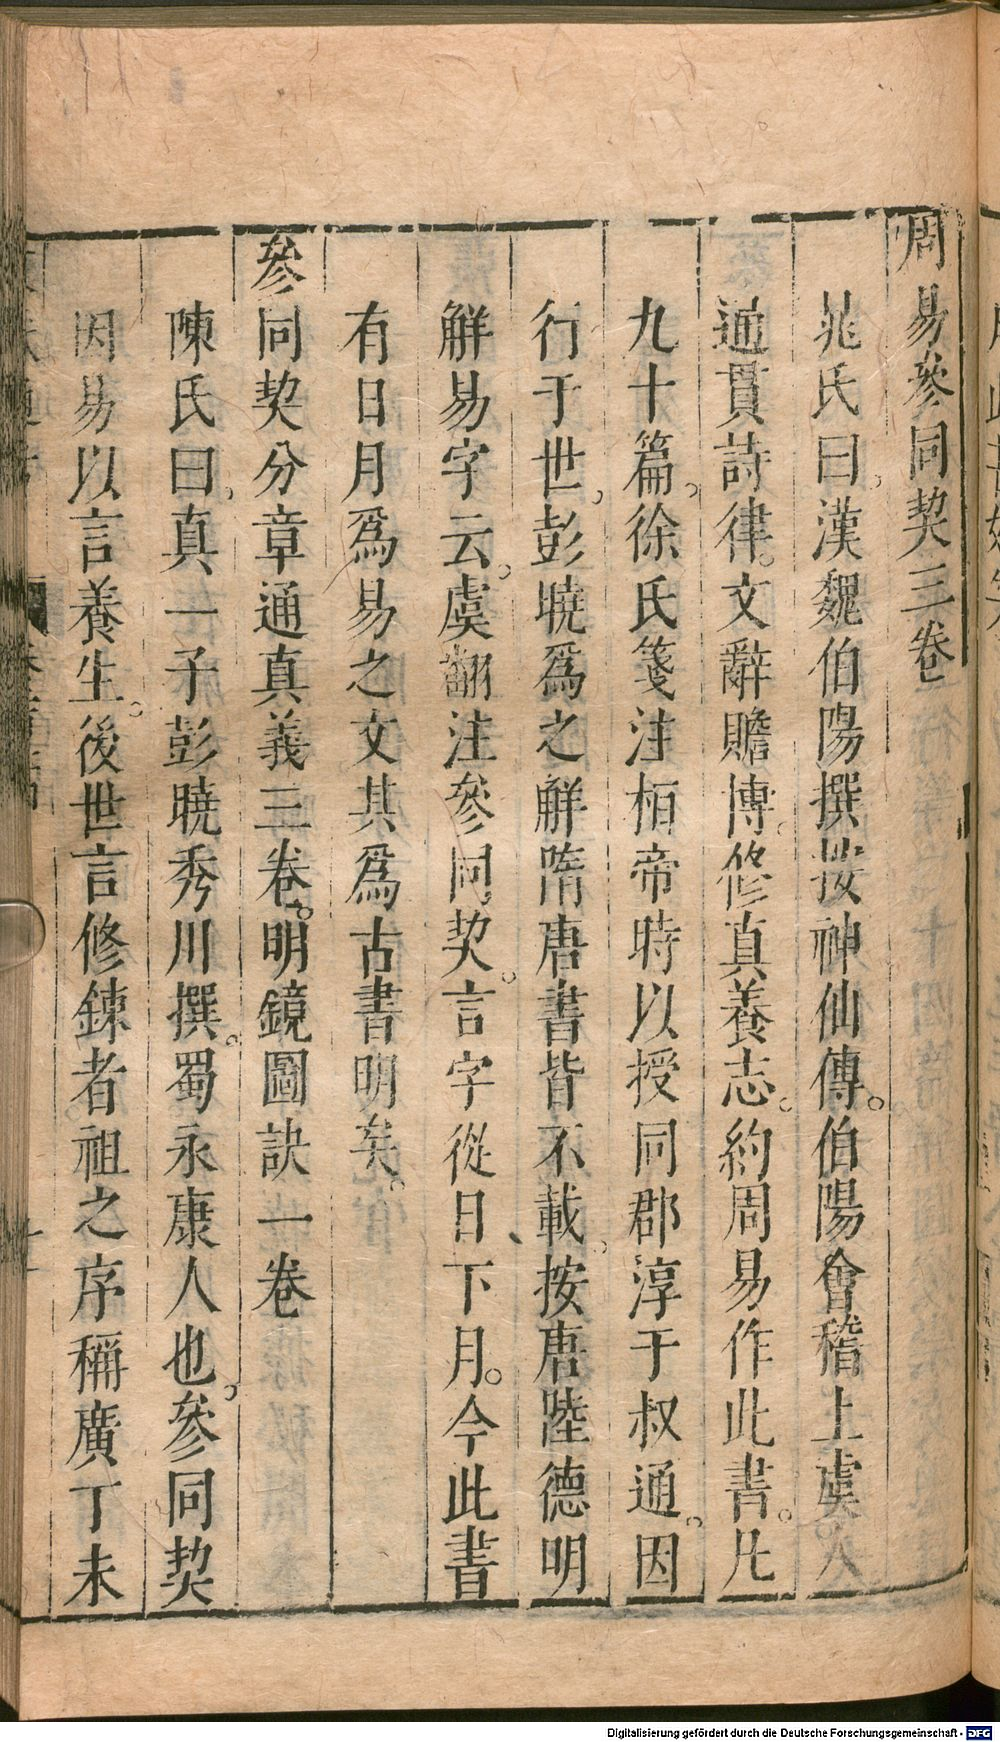 周易參同契三卷
晁氏曰漢魏伯陽撰按神仙傳。伯陽會稽上虞人
通貫詩律。文辭贍博。修真養志。約周易作此書。凡
九十篇。徐氏箋注栢帝時以授同郡淳于叔通。因
行于世。彭曉爲之解隋唐書皆不載。按唐陸德明
解易字云。虞翻注參同契。言字從日下月。今此書
有日月爲易之文其爲古書明矣。
參同契分章通真義三卷。明鏡圖訣一卷
陳氏曰。真一子彭曉秀川撰。蜀永康人也。參同契
因易以言養生。後世言修鍊者。祖之序稱廣丁未
Digitalisierung gefördert durch die Deutsche Forschungsgemeinschaft - DFG